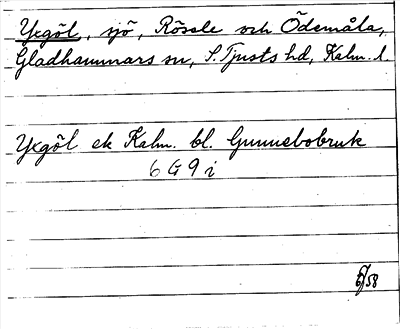 Yxgöl, sjö, Rössle och Ödemåla,
Gladhammars sn, S. Tjusts hd, Kalm. l.
Yxgöl ek Kalm. bl. Gunnebobruk
6 G 9 i
58